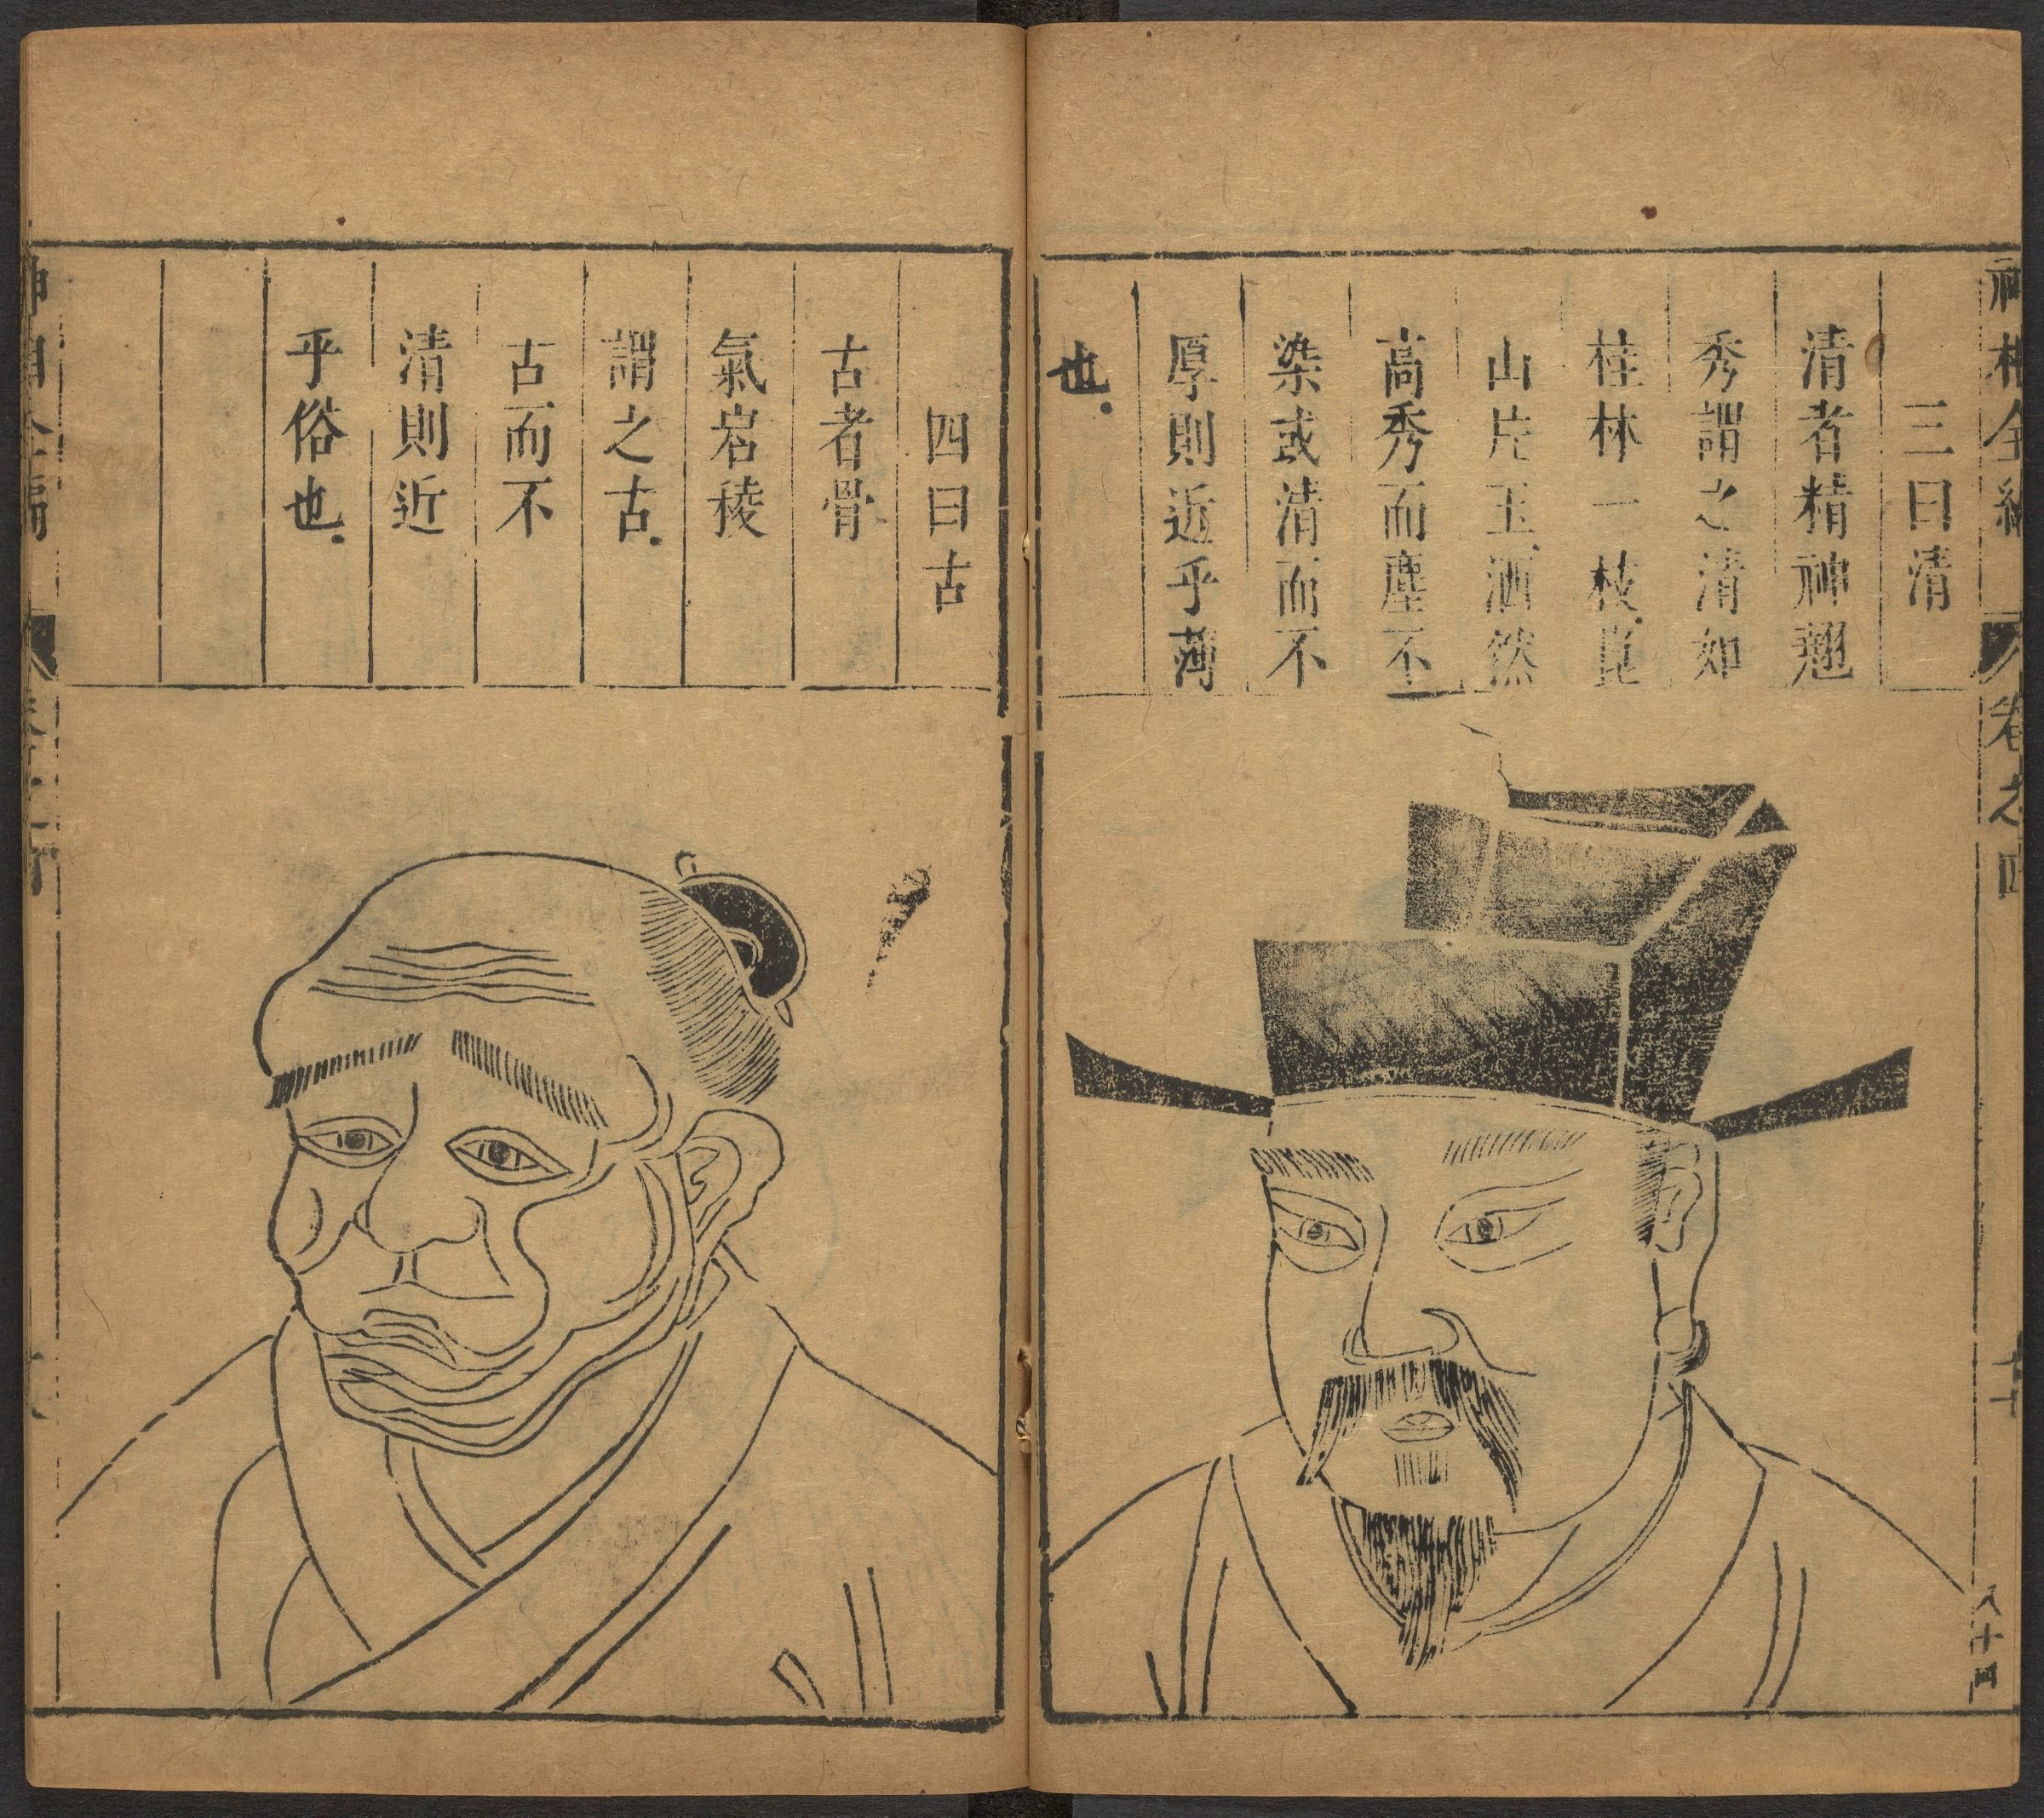 神相全編 卷之四
三曰清
清者精神翹
秀謂之清如
桂林一枝崑
山片玉洒然
高秀而塵不
染或清而不
厚則近乎薄
也
四曰古
古者骨
氣岩稜
謂之古
古而不
清則近
乎俗也